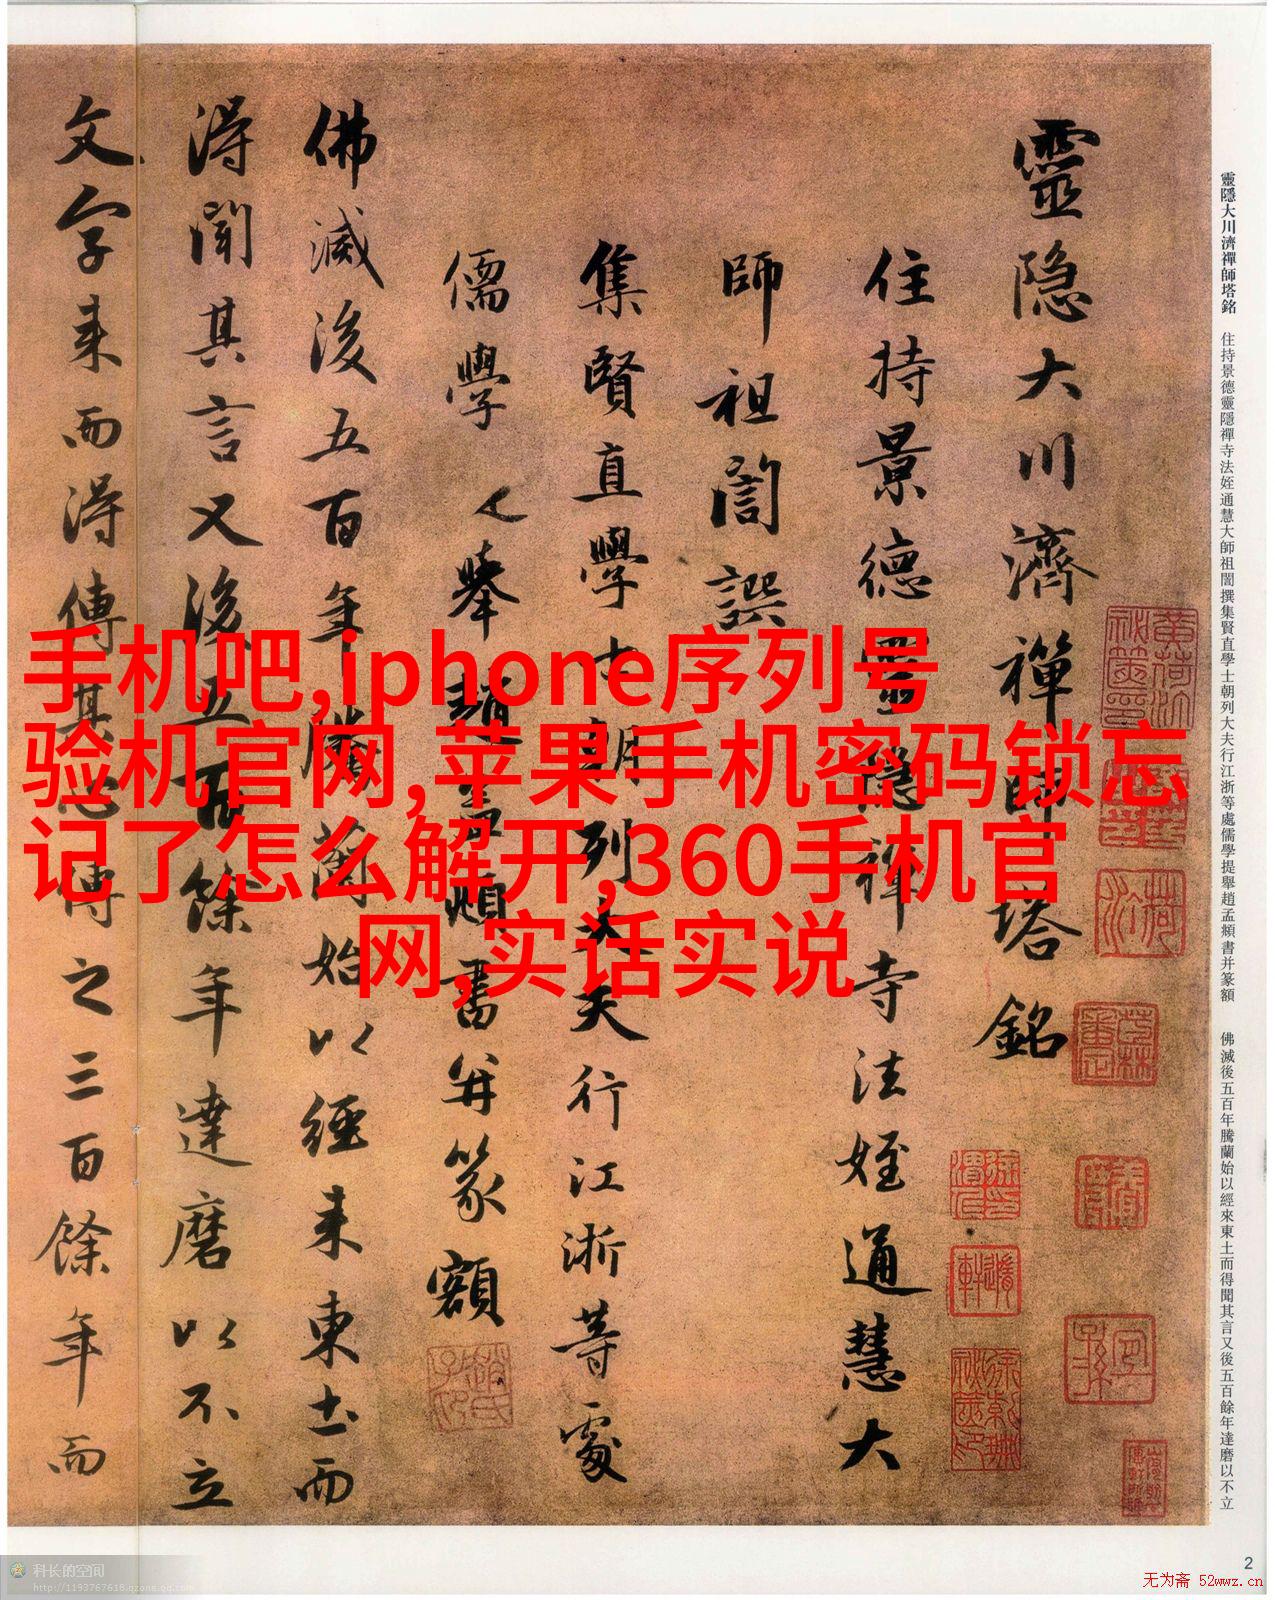 靈隐大川濟禪師塔銘
住持景德靈隱禪寺法姪通慧大
師祖誾譔
集賢直學士朝列大夫行江浙等處
儒學提舉趙孟頫書并篆額
佛滅後五百年騰蘭始以經来東土而
淂聞其言又後五百餘年達磨以不立
文字来而淂傳其心傳之三百餘年而
靈隱大川濟禪師塔銘 住持景德靈隱禪寺法姪通慧大師祖誾撰集賢直學士朝列大夫行江浙等處儒學提舉趙孟頫書并篆額 佛滅後五百年騰蘭始以經來東土而得聞其言又後五百餘年達磨以不立
手机吧,iphone序列号
验机官网,苹果手机密码锁忘
记了怎么解开,360手机官
网,实话实说
2
科长的空间
http://1193767618.qzone.qq.com
无为斋 52wwz.cn